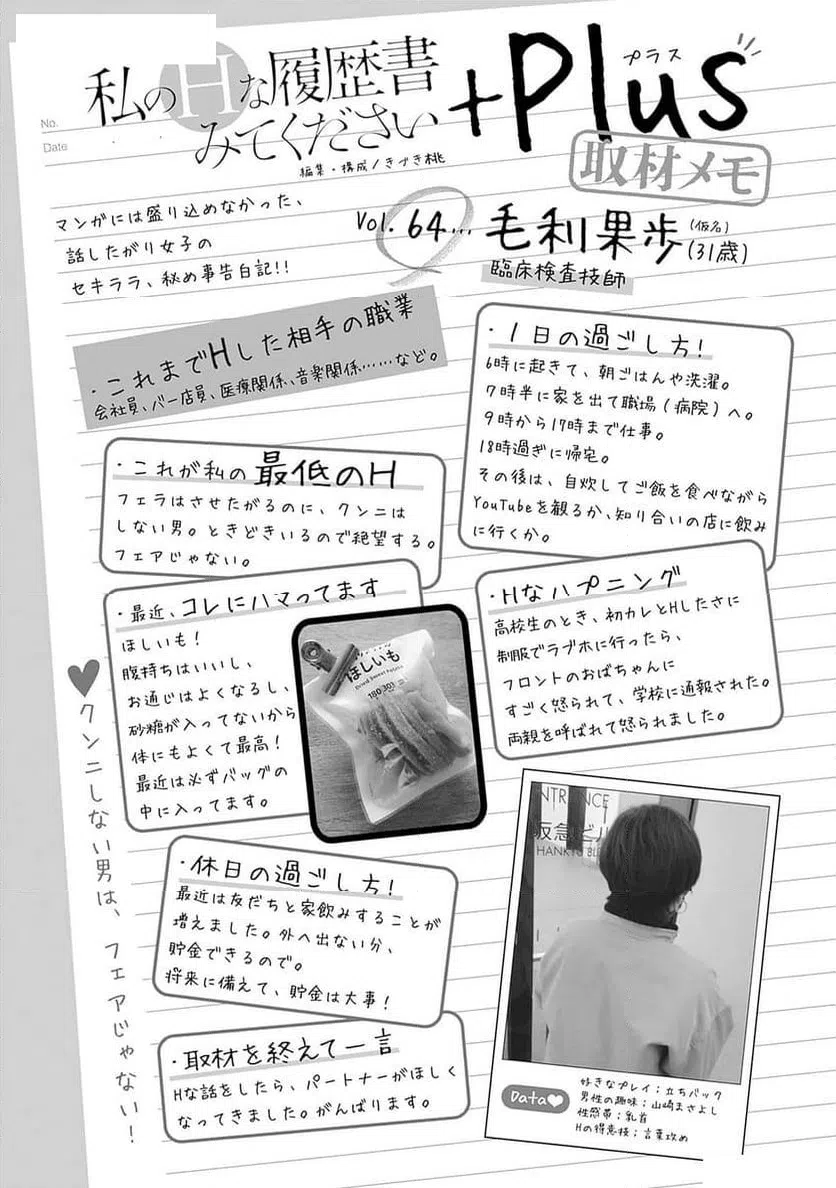 No.
Date
私のHな履歴書
みてください
+Plus
プラス
取材メモ
編集・構成/きづき桃
マンガには盛り込めなかった、
話したがり女子の
セキララ、秘め事告白記!!
Vol. 64… 毛利果歩(仮名)(31歳)
臨床検査技師
・これまでHした相手の職業
会社員、バー店員、医療関係、音楽関係……など。
・1日の過ごし方!
6時に起きて、朝ごはんや洗濯。
7時半に家を出て職場(病院)へ。
9時から17時まで仕事。
18時過ぎに帰宅。
その後は、自炊してご飯を食べながら
YouTubeを観るか、知り合いの店に飲み
に行くか。
・これが私の最低のH
フェラはさせたがるのに、クンニは
しない男。ときどきいるので絶望する。
フェアじゃない。
・最近、コレにハマってます
ほしいも!
腹持ちはいいし、
お通じはよくなるし、
砂糖が入ってないから
体にもよくて最高!
最近は必ずバッグの
中に入ってます。
ほしいも
Dried Sweet Potato
・Hなハプニング
高校生のとき、初カレとHしたさに
制服でラブホに行ったら、
フロントのおばちゃんに
すごく怒られて、学校に通報された。
両親を呼ばれて怒られました。
♥クンニしない男は、フェアじゃない!
・休日の過ごし方!
最近は友だちと家飲みすることが
増えました。外へ出ない分、
貯金できるので。
将来に備えて、貯金は大事!
・取材を終えて一言
Hな話をしたら、パートナーがほしく
なってきました。がんばります。
NTRANCE
阪急ビル
HANKYU BL
Data♥
好きなプレイ;立ちバック
男性の趣味;山崎まさよし
性感帯;乳首
Hの得意技;言葉攻め